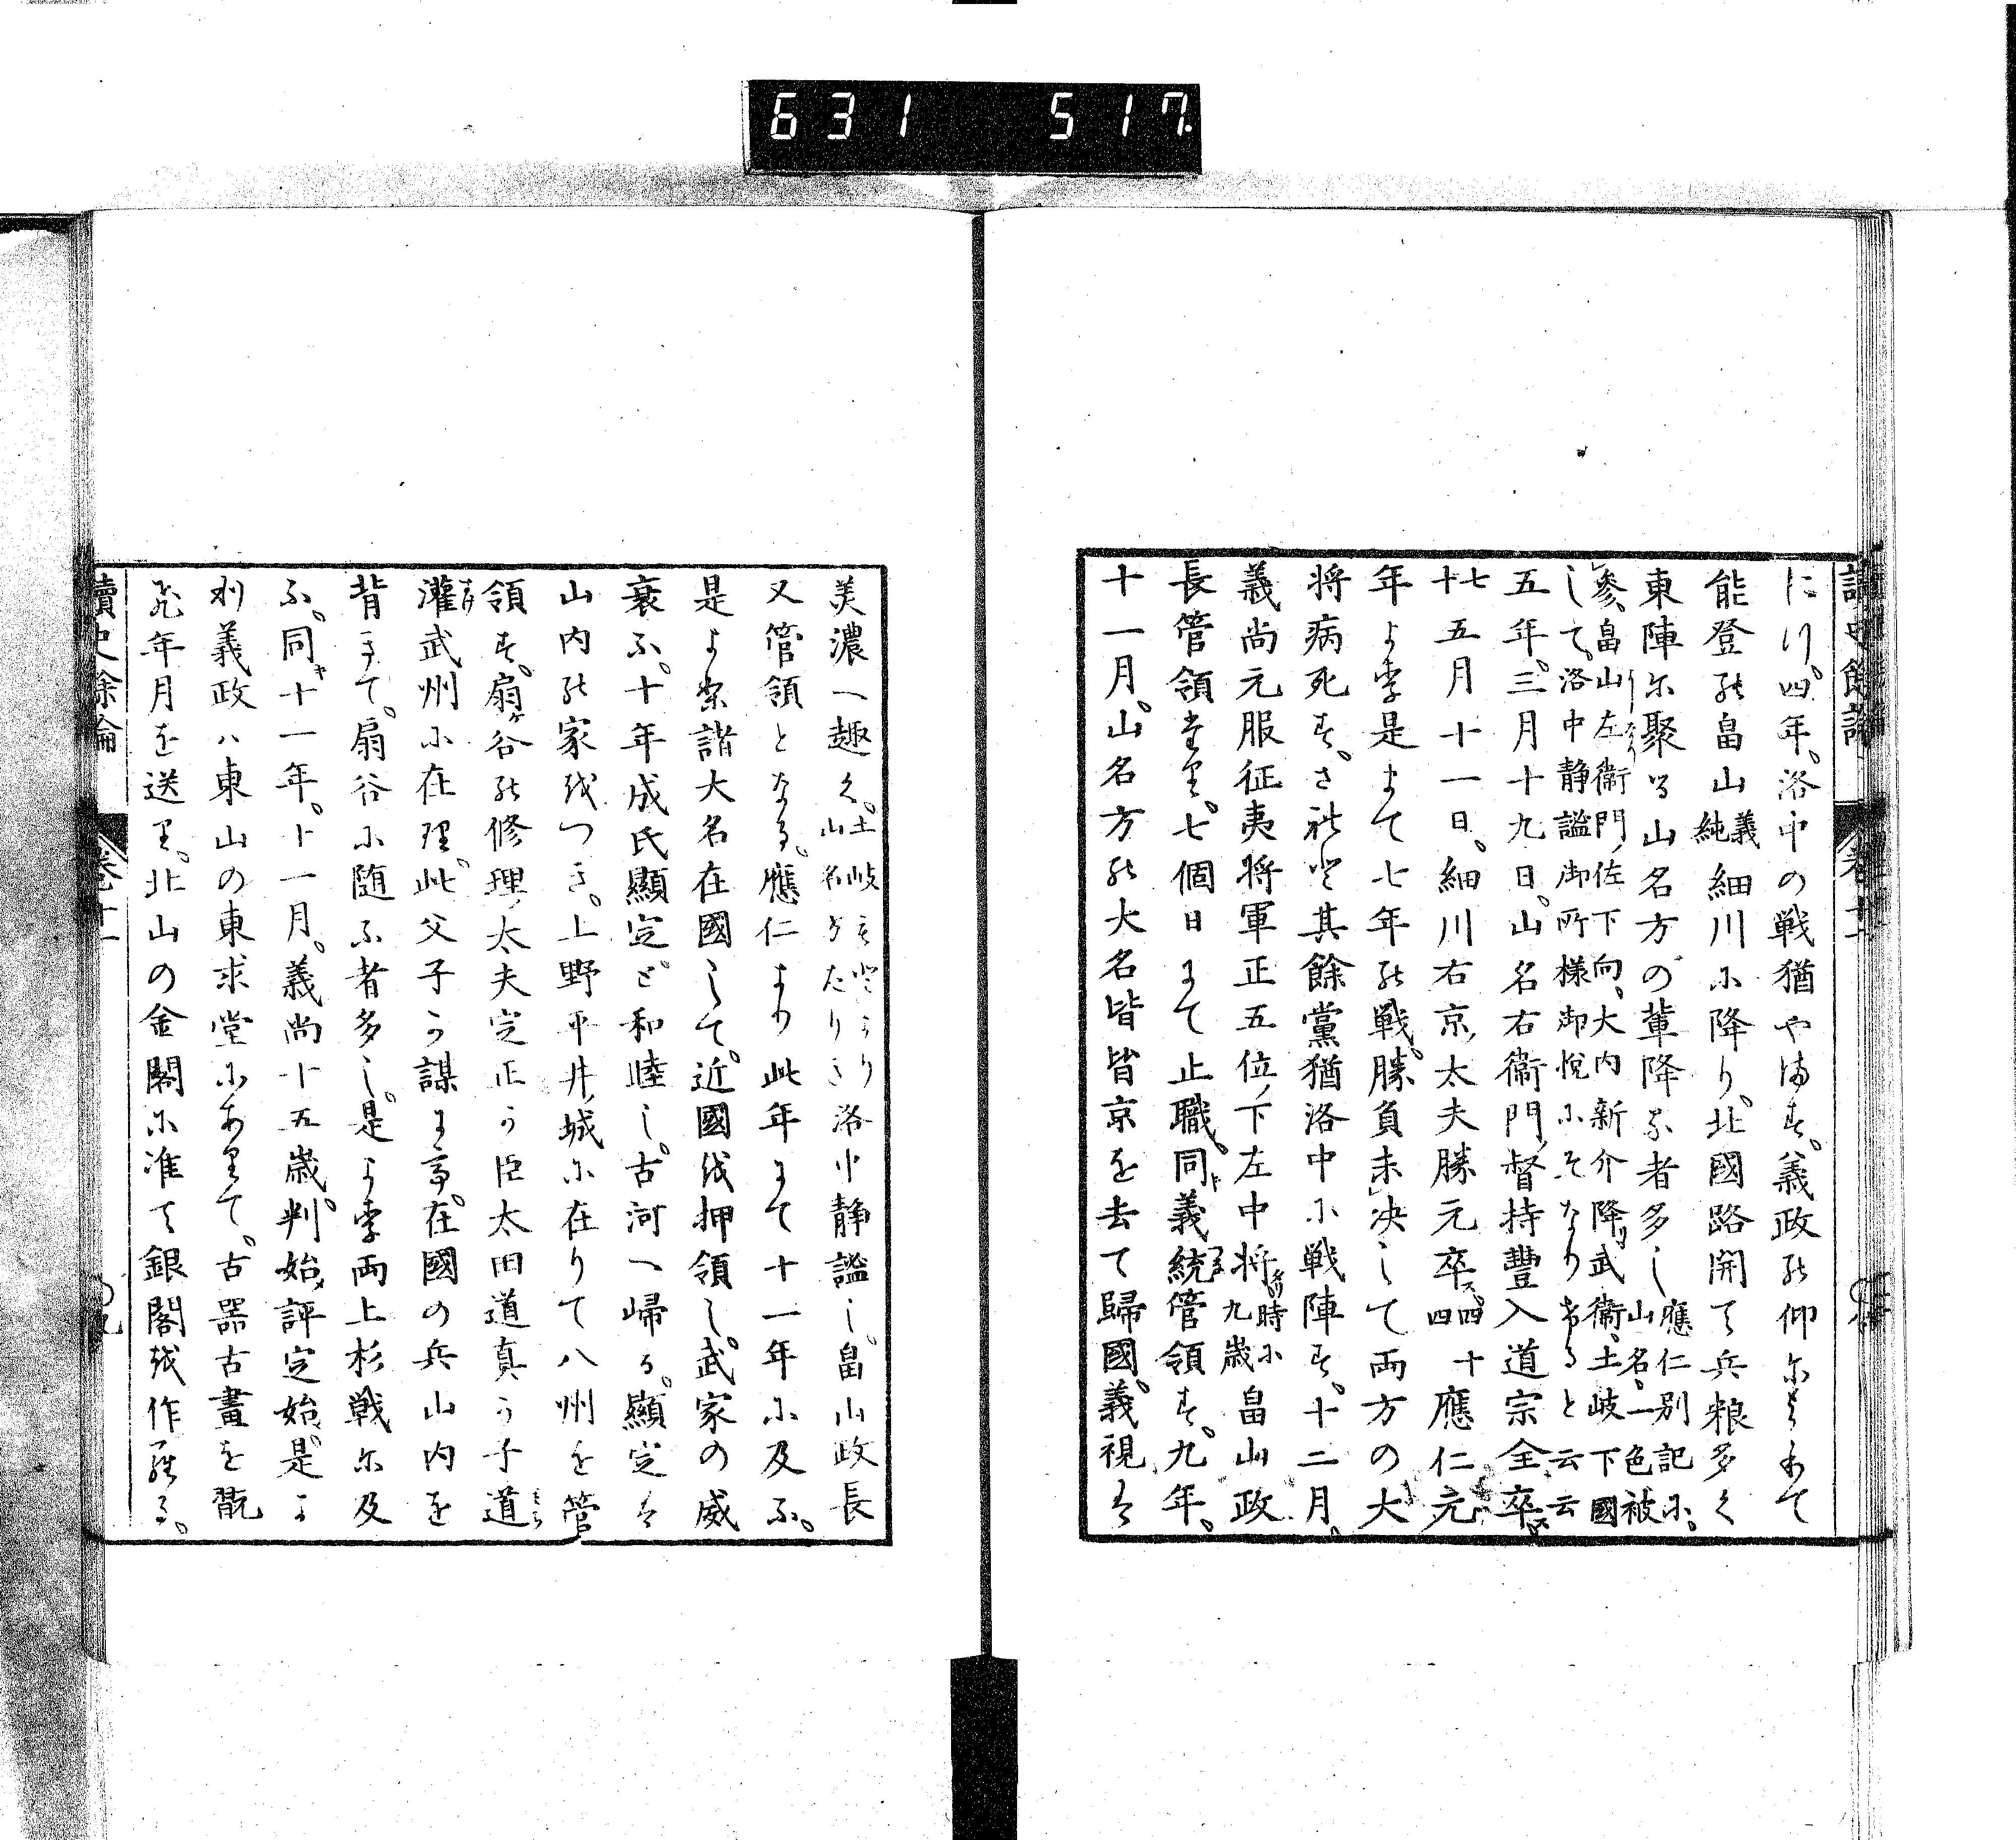 631 517
讀史餘論 卷十一
に行。四年。洛中の戦猶やまず。義政の仰によりて
能登の畠山義純細川に降り。北國路開て兵粮多く
東陣に聚る山名方の輩降る者多し應仁別記に。山名。一色被
參。畠山左衞門佐下向。大内新介降。武衞。土岐下國
して。洛中静謐御所様御悦にそなり けると云云
五年。三月十九日。山名右衞門督持豐入道宗全卒。
七十五月十一日。細川右京太夫勝元卒。四十四應仁元
年より是まて七年の戦。勝負未決して両方の大
将病死す。されと其餘黨猶洛中に戦陣す。十二月。
義尚元服征夷将軍正五位下左中将時に九歳畠山政
長管領たり。七個日まて止職。同義統管領す。九年。
十一月。山名方の大名皆皆京を去て歸國。義視は
美濃へ趣く。土岐 山名 かたり 洛中静謐し。畠山政長
又管領となる。應仁より此年まて十一年に及ふ。
是より諸大名在國して。近國を押領し。武家の威
衰ふ。十年成氏顯定と和睦し。古河へ歸る。顯定は
山内の家をつき。上野平井城に在りて八州を管
領す。扇谷の修理太夫定正か臣太田道真か子道
灌武州に在理。此父子か謀にて。在國の兵山内を
背きて。扇谷に随ふ者多し。是より両上杉戦に及
ふ。同十一年。十一月。義尚十五歳。判始評定始。是よ
り義政ハ東山の東求堂にありて。古器古畫を翫
ひ年月を送り。北山の金閣に准て銀閣を作る。
讀史餘論 卷十一